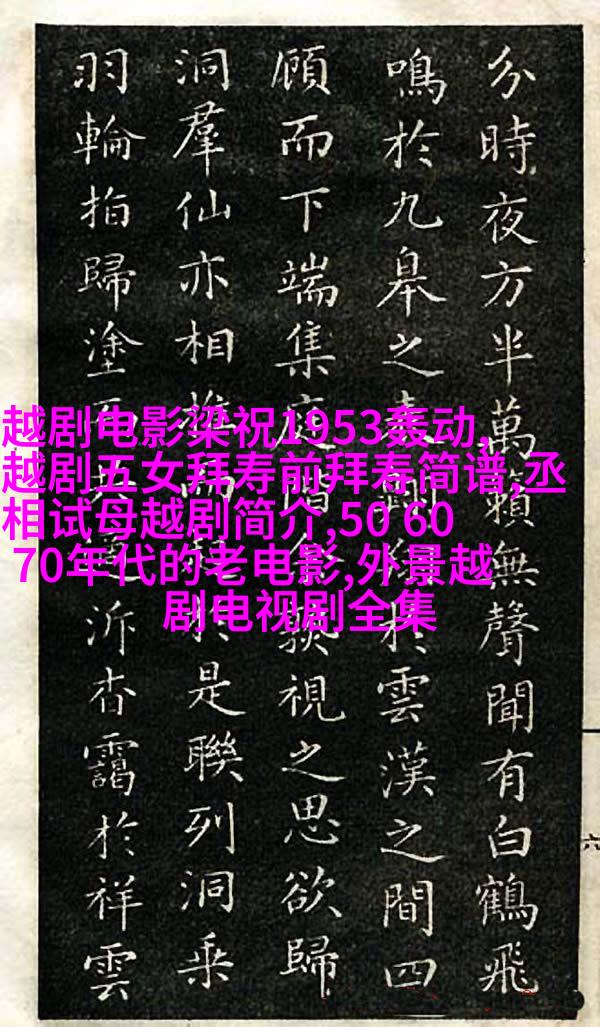 分時夜方半萬籟無聲聞有白鶴飛
鳴於九皋之於雲漢之間四
顧而下端集視之思欲歸
洞羣仙亦相是聯列洞乘
羽輪指歸塗泝杳靄於祥雲
六
越剧电影梁祝1953轰动,
越剧五女拜寿前拜寿简谱,丞
相试母越剧简介,50 60
70年代的老电影,外景越
剧电视剧全集